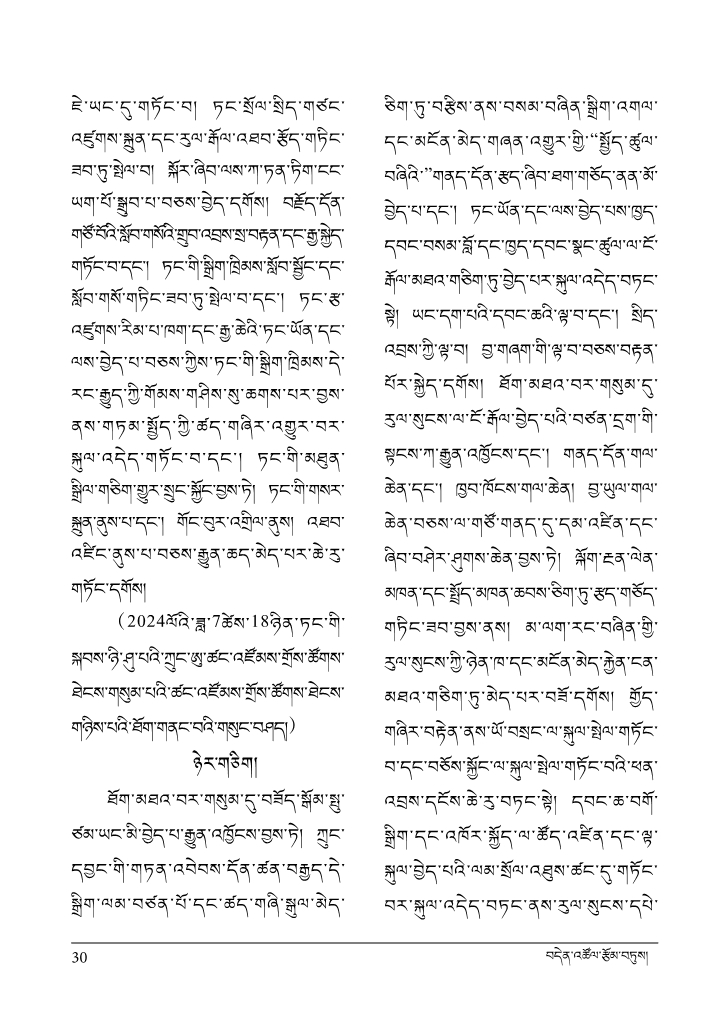 ཇེ་ཡང་དུ་གཏོང་བ། ཏང་སྲོལ་སྲིད་གཙང་
འཛུགས་སྐྲུན་དང་རུལ་རྒོལ་འཐབ་རྩོད་གཏིང་
ཟབ་ཏུ་སྤེལ་བ། སྐོར་ཞིབ་ལས་ཀ་ཏན་ཏིག་ངང་
ཡག་པོ་སྒྲུབ་པ་བཅས་བྱེད་དགོས། བརྗོད་དོན་
གཙོ་བོའི་སློབ་གསོའི་གྲུབ་འབྲས་སྲ་བརྟན་དང་རྒྱ་སྐྱེད་
གཏོང་བ་དང་། ཏང་གི་སྒྲིག་ཁྲིམས་སློབ་སྦྱོང་དང་
སློབ་གསོ་གཏིང་ཟབ་ཏུ་སྤེལ་བ་དང་། ཏང་རྩ་
འཛུགས་རིམ་པ་ཁག་དང་རྒྱ་ཆེའི་ཏང་ཡོན་དང་
ལས་བྱེད་པ་བཅས་ཀྱིས་ཏང་གི་སྒྲིག་ཁྲིམས་དེ་
རང་རྒྱུད་ཀྱི་གོམས་གཤིས་སུ་ཆགས་པར་བྱས་
ནས་གཏམ་སྤྱོད་ཀྱི་ཚད་གཞིར་འགྱུར་བར་
སྐུལ་འདེད་གཏོང་བ་དང་། ཏང་གི་མཐུན་
སྒྲིལ་གཅིག་གྱུར་སྲུང་སྐྱོང་བྱས་ཏེ། ཏང་གི་གསར་
སྐྲུན་ནུས་པ་དང་། གོང་བུར་འགྲིལ་ནུས། འཐབ་
འཛིང་ནུས་པ་བཅས་རྒྱུན་ཆད་མེད་པར་ཆེ་རུ་
གཏོང་དགོས།
(2024ལོའི་ཟླ་7ཚེས་18ཉིན་ཏང་གི་
སྐབས་ཉི་ཤུ་པའི་ཀྲུང་ཨུ་ཚང་འཛོམས་གྲོས་ཚོགས་
ཐེངས་གསུམ་པའི་ཚང་འཛོམས་གྲོས་ཚོགས་ཐེངས་
གཉིས་པའི་ཐོག་གནང་བའི་གསུང་བཤད།)
ཉེར་གཅིག།
ཐོག་མཐའ་བར་གསུམ་དུ་བཟོད་སྒོམ་སྤུ་
ཙམ་ཡང་མི་བྱེད་པ་རྒྱུན་འཁྱོངས་བྱས་ཏེ། ཀྲུང་
དབྱང་གི་གཏན་འབེབས་དོན་ཚན་བརྒྱད་དེ་
སྒྲིག་ལམ་བཙན་པོ་དང་ཚད་གཞི་སྒུལ་མེད་
ཅིག་ཏུ་བརྩིས་ནས་བསམ་བཞིན་སྒྲིག་འགལ་
དང་མངོན་མེད་གཞན་འགྱུར་གྱི་“སྤྱོད་ཚུལ་
བཞིའི་”གནད་དོན་རྩད་ཞིབ་ཐག་གཅོད་ནན་མོ་
བྱེད་པ་དང་། ཏང་ཡོན་དང་ལས་བྱེད་པས་ཁྱད་
དབང་བསམ་བློ་དང་ཁྱད་དབང་སྣང་ཚུལ་ལ་ངོ་
རྒོལ་མཐའ་གཅིག་ཏུ་བྱེད་པར་སྐུལ་འདེད་བཏང་
སྟེ། ཡང་དག་པའི་དབང་ཆའི་ལྟ་བ་དང་། སྲིད་
འབྲས་ཀྱི་ལྟ་བ། བྱ་གཞག་གི་ལྟ་བ་བཅས་བརྟན་
པོར་སྐྱེད་དགོས། ཐོག་མཐའ་བར་གསུམ་དུ་
རུལ་སུངས་ལ་ངོ་རྒོལ་བྱེད་པའི་བཙན་དྲག་གི་
སྟངས་ཀ་རྒྱུན་འཁྱོངས་དང་། གནད་དོན་གལ་
ཆེན་དང་། ཁྱབ་ཁོངས་གལ་ཆེན། བྱ་ཡུལ་གལ་
ཆེན་བཅས་ལ་གཙོ་གནད་དུ་དམ་འཛིན་དང་
ཞིབ་བཤེར་ཤུགས་ཆེན་བྱས་ཏེ། ལྐོག་རྔན་ལེན་
མཁན་དང་སྤྲོད་མཁན་ཆབས་ཅིག་ཏུ་རྩད་གཅོད་
གཏིང་ཟབ་བྱས་ནས། མ་ལག་རང་བཞིན་གྱི་
རུལ་སུངས་ཀྱི་ཉེན་ཁ་དང་མངོན་མེད་རྐྱེན་ངན་
མཐའ་གཅིག་ཏུ་མེད་པར་བཟོ་དགོས། གྱོད་
གཞིར་བརྟེན་ནས་ཡོ་བསྲང་ལ་སྐུལ་སྤེལ་གཏོང་
བ་དང་བཅོས་སྐྱོང་ལ་སྐུལ་སྤེལ་གཏོང་བའི་ཕན་
འབྲས་དངོས་ཆེ་རུ་བཏང་སྟེ། དབང་ཆ་བགོ་
སྒྲིག་དང་འཁོར་སྐྱོད་ལ་ཚོད་འཛིན་དང་ལྟ་
སྐུལ་བྱེད་པའི་ལམ་སྲོལ་འཐུས་ཚང་དུ་གཏོང་
བར་སྐུལ་འདེད་བཏང་ནས་རུལ་སུངས་དཔེ་
30
བདེན་འཚོལ་རྩོམ་བཏུས།